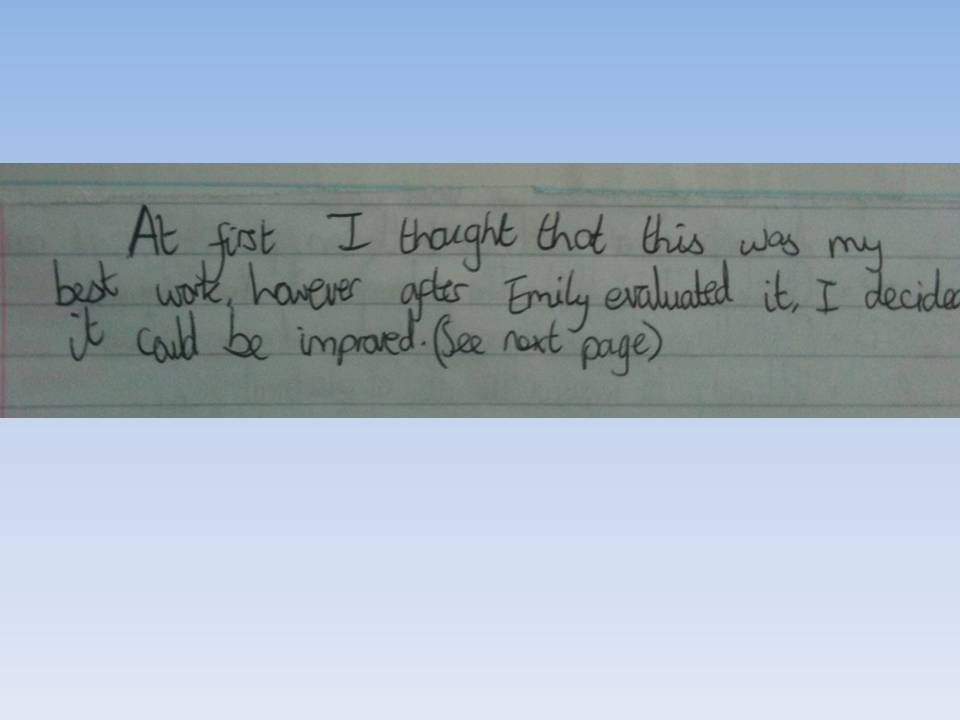 At first I thought that this was my
best work, however after Emily evaluated it, I decided
it could be improved. (See next page)